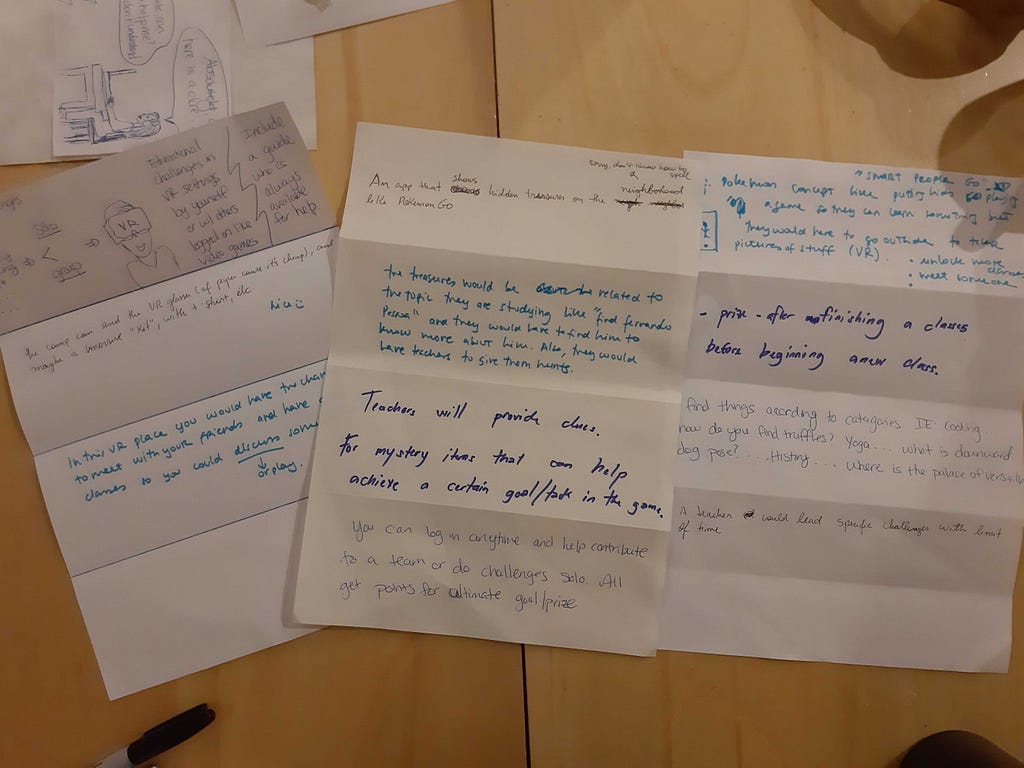 can
help me?
I don't understand
Absolutely
here is a clue
solo
group
VR
Educational
challenges in
VR settings
by yourself
or w/ others
logged on like
video games
Include
a guide
who is
always
available
for help
the camp can send the VR glasses (of paper cause its cheap), and
maybe a "Kit", with t-shirt, etc.
Nice
In this VR place you would have the chan
to meet with your friends and have
classes so you could discuss som
or play.
Sorry, don't know how to
spell
An app that shows hidden treasures on the neighborhood
like Pokemon GO
the treasures would be related to
the topic they are studying like "find fernando
Pessoa" and they would have to find him to
know more about him. Also, they would
have teachers to give them hunts.
Teachers will provide clues.
For mystery items that can help
achieve a certain goal/task in the game.
You can log in anytime and help contribute
to a team or do challenges solo. All
get points for ultimate goal/prize
"SMART PEOPLE GO"
Pokemon concept like putting playing
a game so they can learn something but
they would have to go outside to take
pictures of stuff (VR).
• unlock more
classes
• meet someone
- prize - after finishing a classes
before beginning a new class.
find things according to catagories IE cooking
how do you find truffles? Yoga... what is downward
dog pose?... History... Where is the palace of versaille
A teacher could lead specific challenges with limit
of time